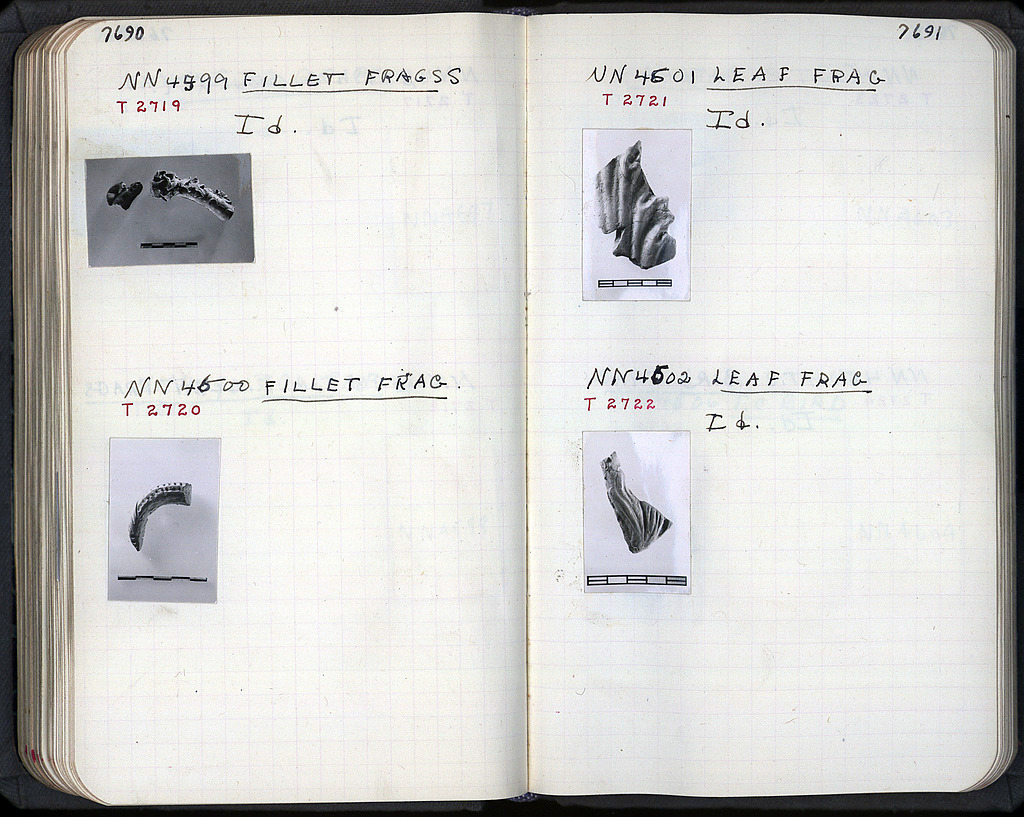 7690
NN 4599 FILLET FRAGSS
T 2719
Id.
NN 4500 FILLET FRAG.
T 2720
7691
NN 4501 LEAF FRAG
T 2721
Id.
NN 4502 LEAF FRAG
T 2722
Id.